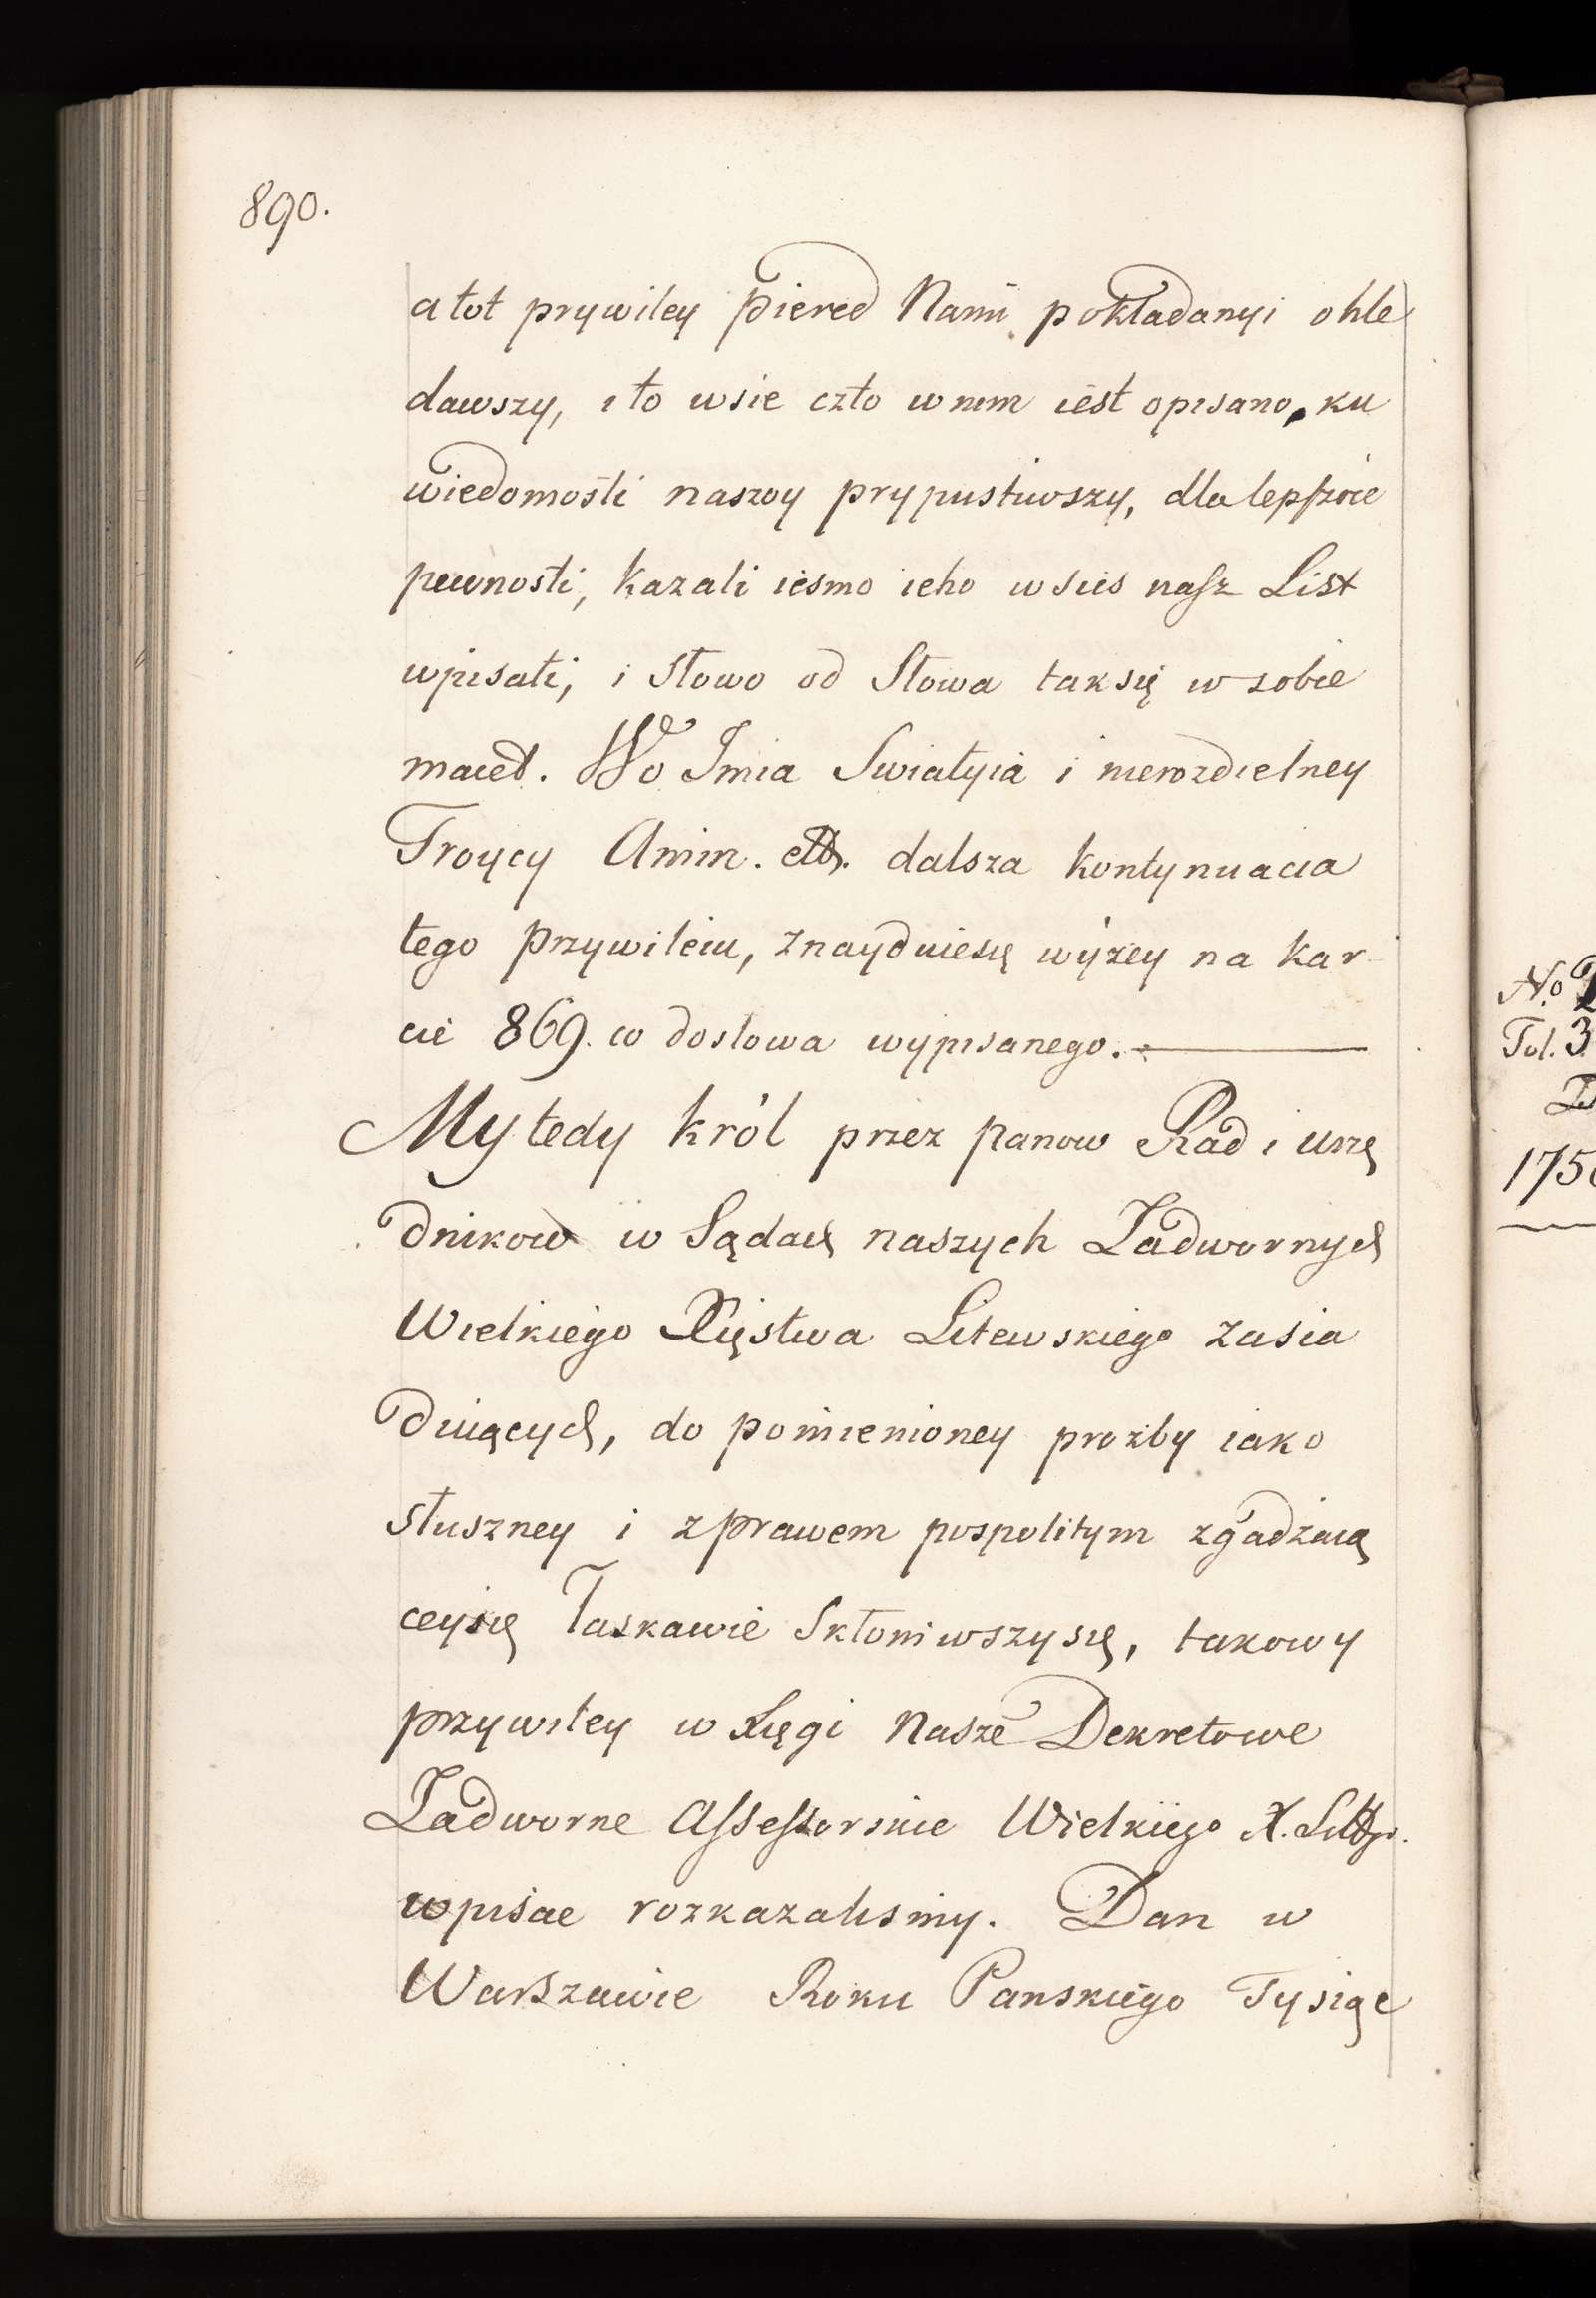 890.
a tot prywiley piered Nami pokładanyi ohle
dawszy, i to wsie czto w nim iest opisano, ku
wiedomosti naszoy prypustiwszy, dla lepszoie
pewnosti, kazali iesmo ieho w sies nasz List
wpisati, i słowo od słowa tak się w sobie
maiet. Wo Imia Swiatyia i nierozdielney
Troycy Amin. ett. dalsza kontynuacia
tego przywileiu, znayduiesię wyżey na kar
cie 869. co dosłowa wypisanego.
My tedy król przez panow Rad i urzę
dnikow w Sądach naszych Zadwornych
Wielkiego Xięstwa Litewskiego zasia
duiących, do pomienioney prozby iako
słuszney i z prawem pospolitym zgadzaią
ceysię łaskawie skłoniwszysię, takowy
przywiley w Xięgi Nasze Dekretowe
Zadworne Assessorskie Wielkiego X. Littgo.
wpisac rozkazalismy. Dan w
Warszawie Roku Panskiego Tysiąc
No
Fol. 3
175